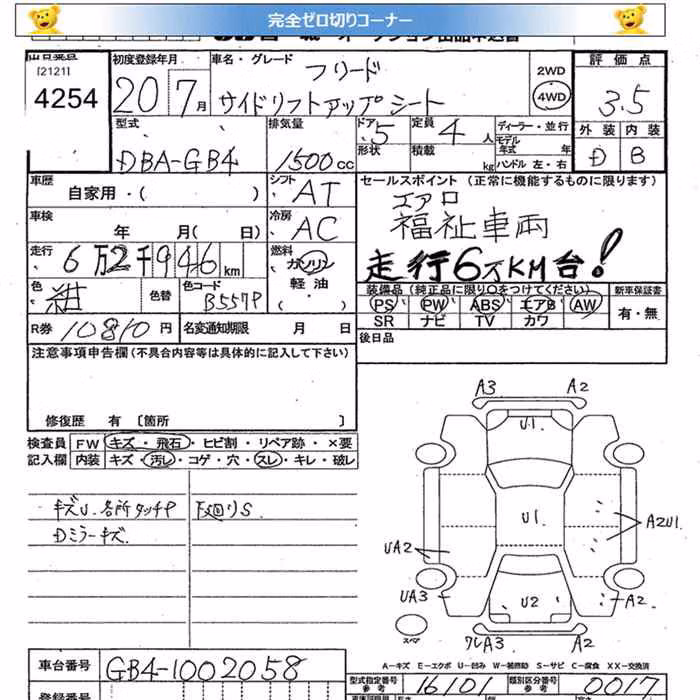 完全ゼロ切りコーナー
[2121]
4254
初度登録年月
20 7月
車名・グレード
フリード
サイドリフトアップシート
2WD
4WD
評価点
3.5
外装 内装
D B
型式
DBA-GB4
排気量
1500cc
ドア
5
形状
定員
4人
積載
kg
ディーラー・並行
モデル年式 年
ハンドル 左・右
車歴
自家用・( )
シフト
AT
車検
年 月( 日)
冷房
AC
セールスポイント (正常に機能するものに限ります)
エアロ
福祉車両
走行6万KM台!
走行
6万2千946km
燃料
ガソリン
軽油
色
紺
色替
色コード
B557P
装備品(純正品に限り○をつけてください)
PS・PW・ABS・エアB・AW
SR ナビ TV カワ
新車保証書
有・無
R券 10810円
名変通知期限 月 日
後日品
注意事項申告欄(不具合内容等は具体的に記入して下さい)
修復歴 有 [箇所 ]
検査員
記入欄
FW キズ・飛石・ヒビ割・リペア跡・×要
内装 キズ・汚レ・コゲ・穴・スレ・キレ・破レ
キズU.各所タッチP
Dミラーキズ.
下廻りS.
A3
A2
U1
U1
A2U1
UA2
UA3
U2
A2
スペア
ワレA3
A2
A-キズ E-エクボ U-凹み W-補修跡 S-サビ C-腐食 XX-交換済
車台番号
GB4-1002058
型式指定番号
参考
16101
類別区分番号
参考
0017
登録番号